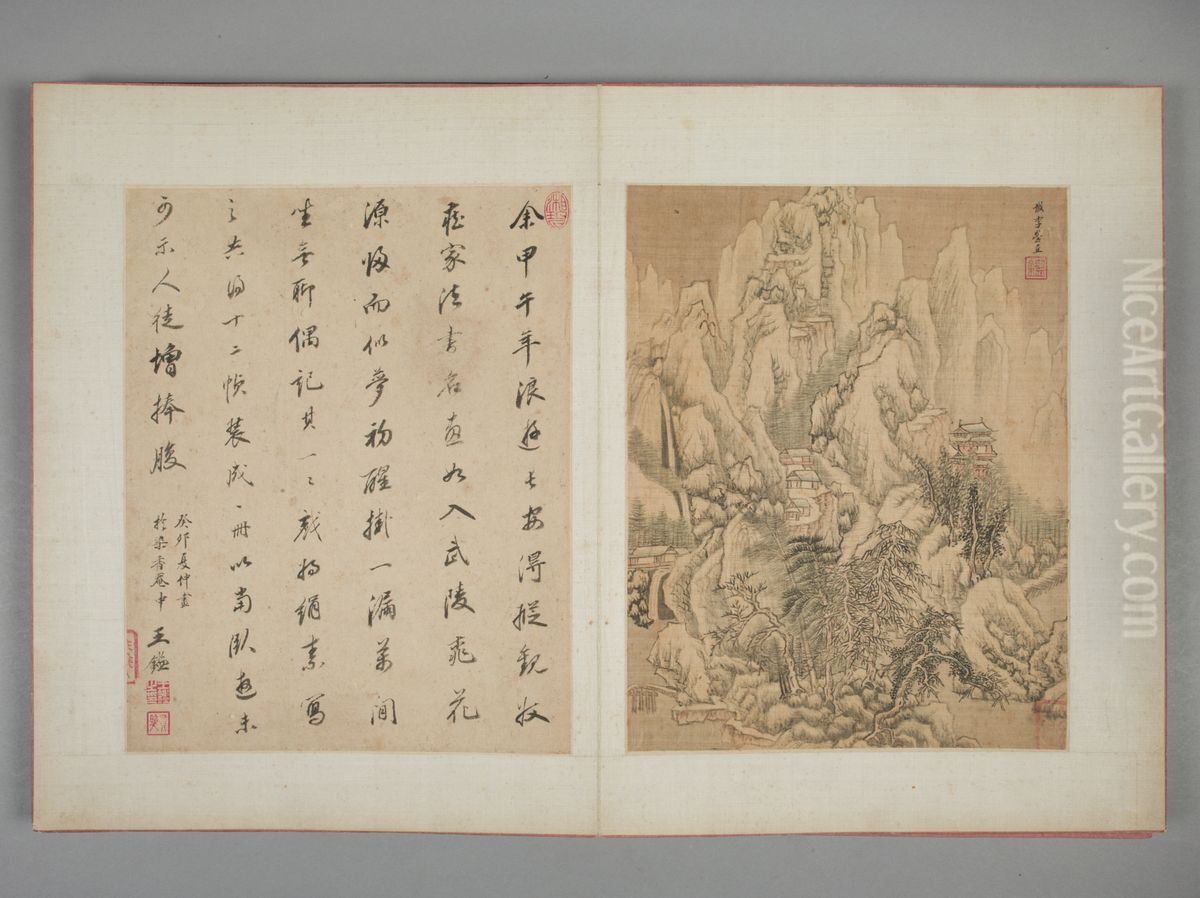 李營丘
余甲午年浪遊長安得縱觀收
藏家法書名畫如入武陵桃花
源歸而似夢初醒掛一漏萬間
坐無聊偶記其一二戲將絹素寫
之共得十二幀裝成一冊以當臥遊未
可示人徒增捧腹
癸卯夏仲畫
於染香菴中
王鑑
NiceArtGallery.com